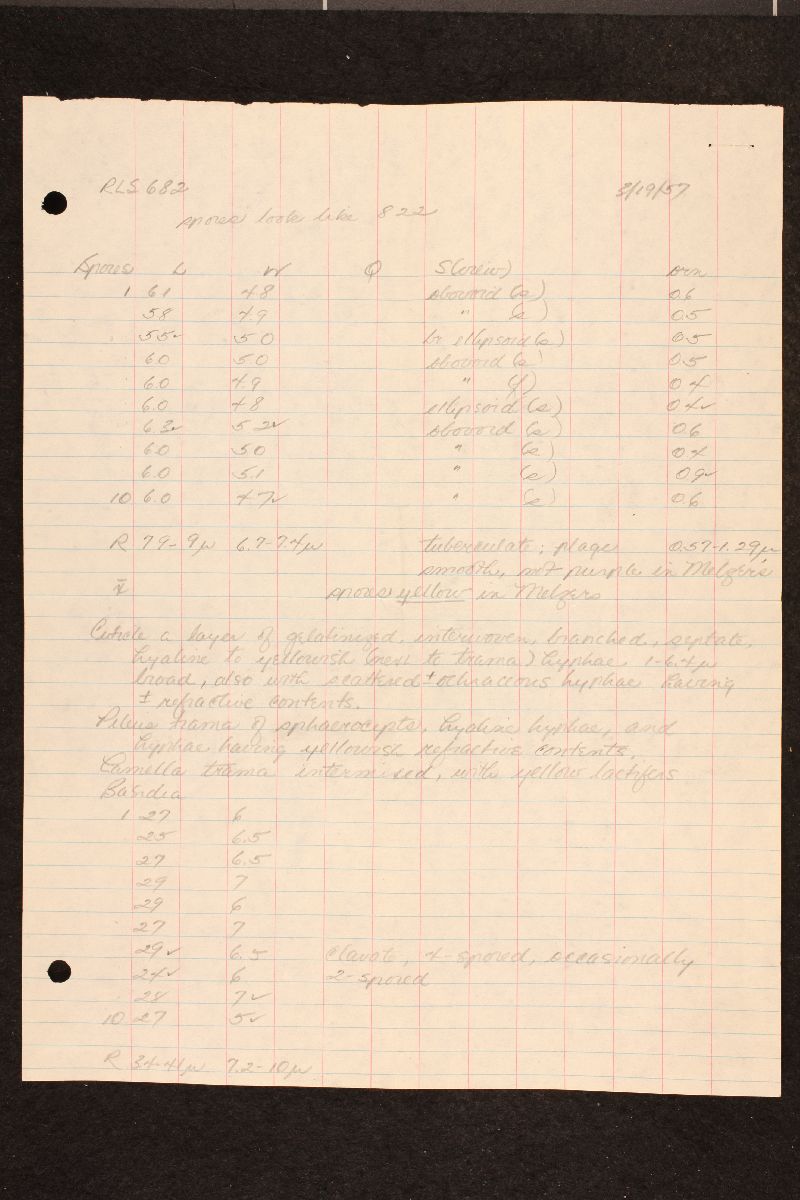 RLS 682 3/19/57
spores look like 822
Spores L W Q S(view) orn
1 61 48 obovoid (s) 0.6
58 49 " (s) 0.5
55✓ 50 br ellipsoid (s) 0.5
60 50 obovoid (s) 0.5
6.0 49 " (f) 0.4
6.0 48 ellipsoid (s) 0.4✓
6.3✓ 5.2✓ obovoid (s) 0.6
6.0 50 " (s) 0.4
6.0 5.1 " (s) 0.9✓
10 6.0 47✓ " (s) 0.6
R 7.9-9µ 6.7-7.4µ tuberculate; plage 0.57-1.29µ
smooth, not purple in Melzer's
x̄ spores yellow in Melzers
Cuticle a layer of gelatinized, interwoven, branched, septate,
hyaline to yellowish (next to trama) hyphae 1-6.4µ
broad, also with scattered ± ochraceous hyphae having
± refractive contents.
Pileus trama of sphaerocysts, hyaline hyphae, and
hyphae having yellowish refractive contents.
Lamella trama intermixed, with yellow lactifers
Basidia
1 27 6
25 6.5
27 6.5
29 7
29 6
27 7
29✓ 6.5 clavate, 4-spored, occasionally
24✓ 6 2-spored
28 7✓
10 27 5✓
R 34-41µ 7.2-10µ